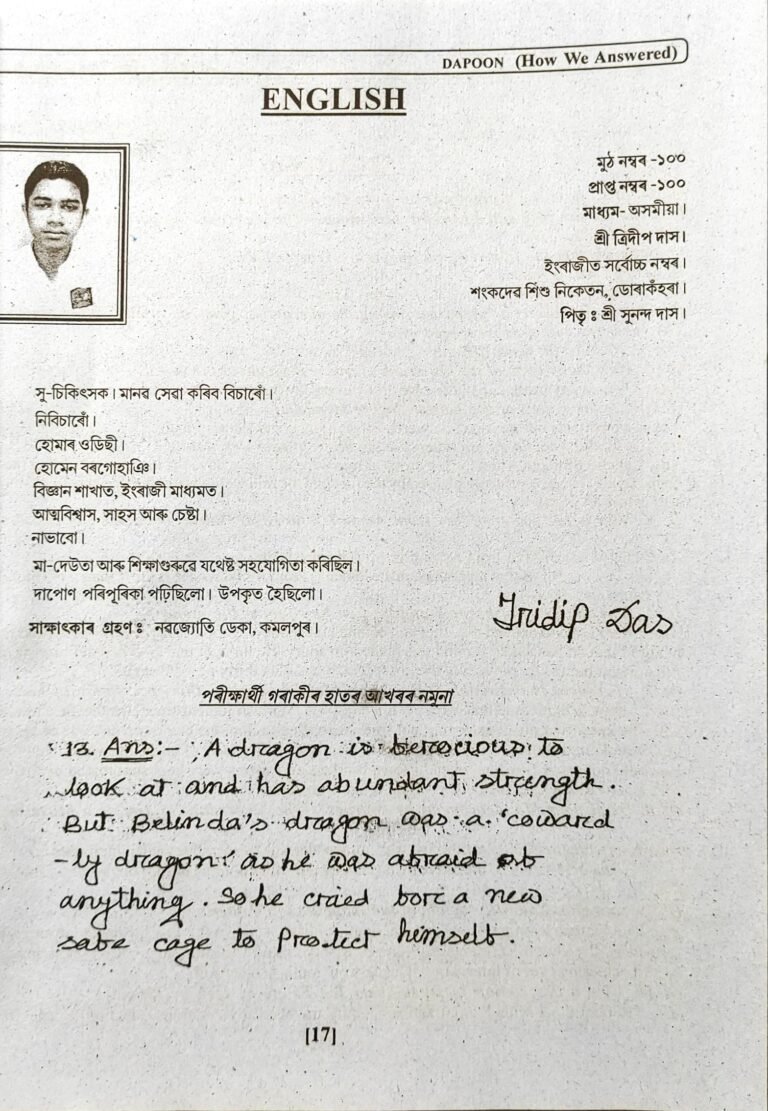 DAPOON (How We Answered)
ENGLISH
মুঠ নম্বৰ -১০০
প্ৰাপ্ত নম্বৰ -১০০
মাধ্যম- অসমীয়া।
শ্ৰী ত্ৰিদীপ দাস।
ইংৰাজীত সৰ্বোচ্চ নম্বৰ।
শংকদেৱ শিশু নিকেতন, ডোৰাকঁহৰা।
পিতৃ ঃ শ্ৰী সুনন্দ দাস।
সু-চিকিৎসক। মানৱ সেৱা কৰিব বিচাৰোঁ।
নিবিচাৰোঁ।
হোমাৰ ওডিছী।
হোমেন বৰগোহাঞি।
বিজ্ঞান শাখাত, ইংৰাজী মাধ্যমত।
আত্মবিশ্বাস, সাহস আৰু চেষ্টা।
নাভাবো।
মা-দেউতা আৰু শিক্ষাগুৰুৱে যথেষ্ট সহযোগিতা কৰিছিল।
দাপোণ পৰিপূৰিকা পঢ়িছিলো। উপকৃত হৈছিলো।
সাক্ষাৎকাৰ গ্ৰহণ ঃ নৱজ্যোতি ডেকা, কমলপুৰ।
Tridip Das
পৰীক্ষাৰ্থী গৰাকীৰ হাতৰ আখৰৰ নমুনা
13. Ans:- A dragon is ferocious to
look at and has abundant strength.
But Belinda's dragon was a 'coward
-ly dragon' as he was afraid of
anything. So he cried for a new
safe cage to Protect himself.
[17]